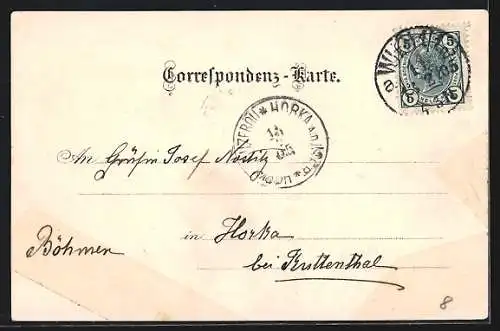 5 5
WIEN
5 5
Correspondenz-Karte.
HORKA A.D. ISER
14
05
An Gräfin Josef Nostitz
in Horka
Böhmen
bei Kuttenthal
8